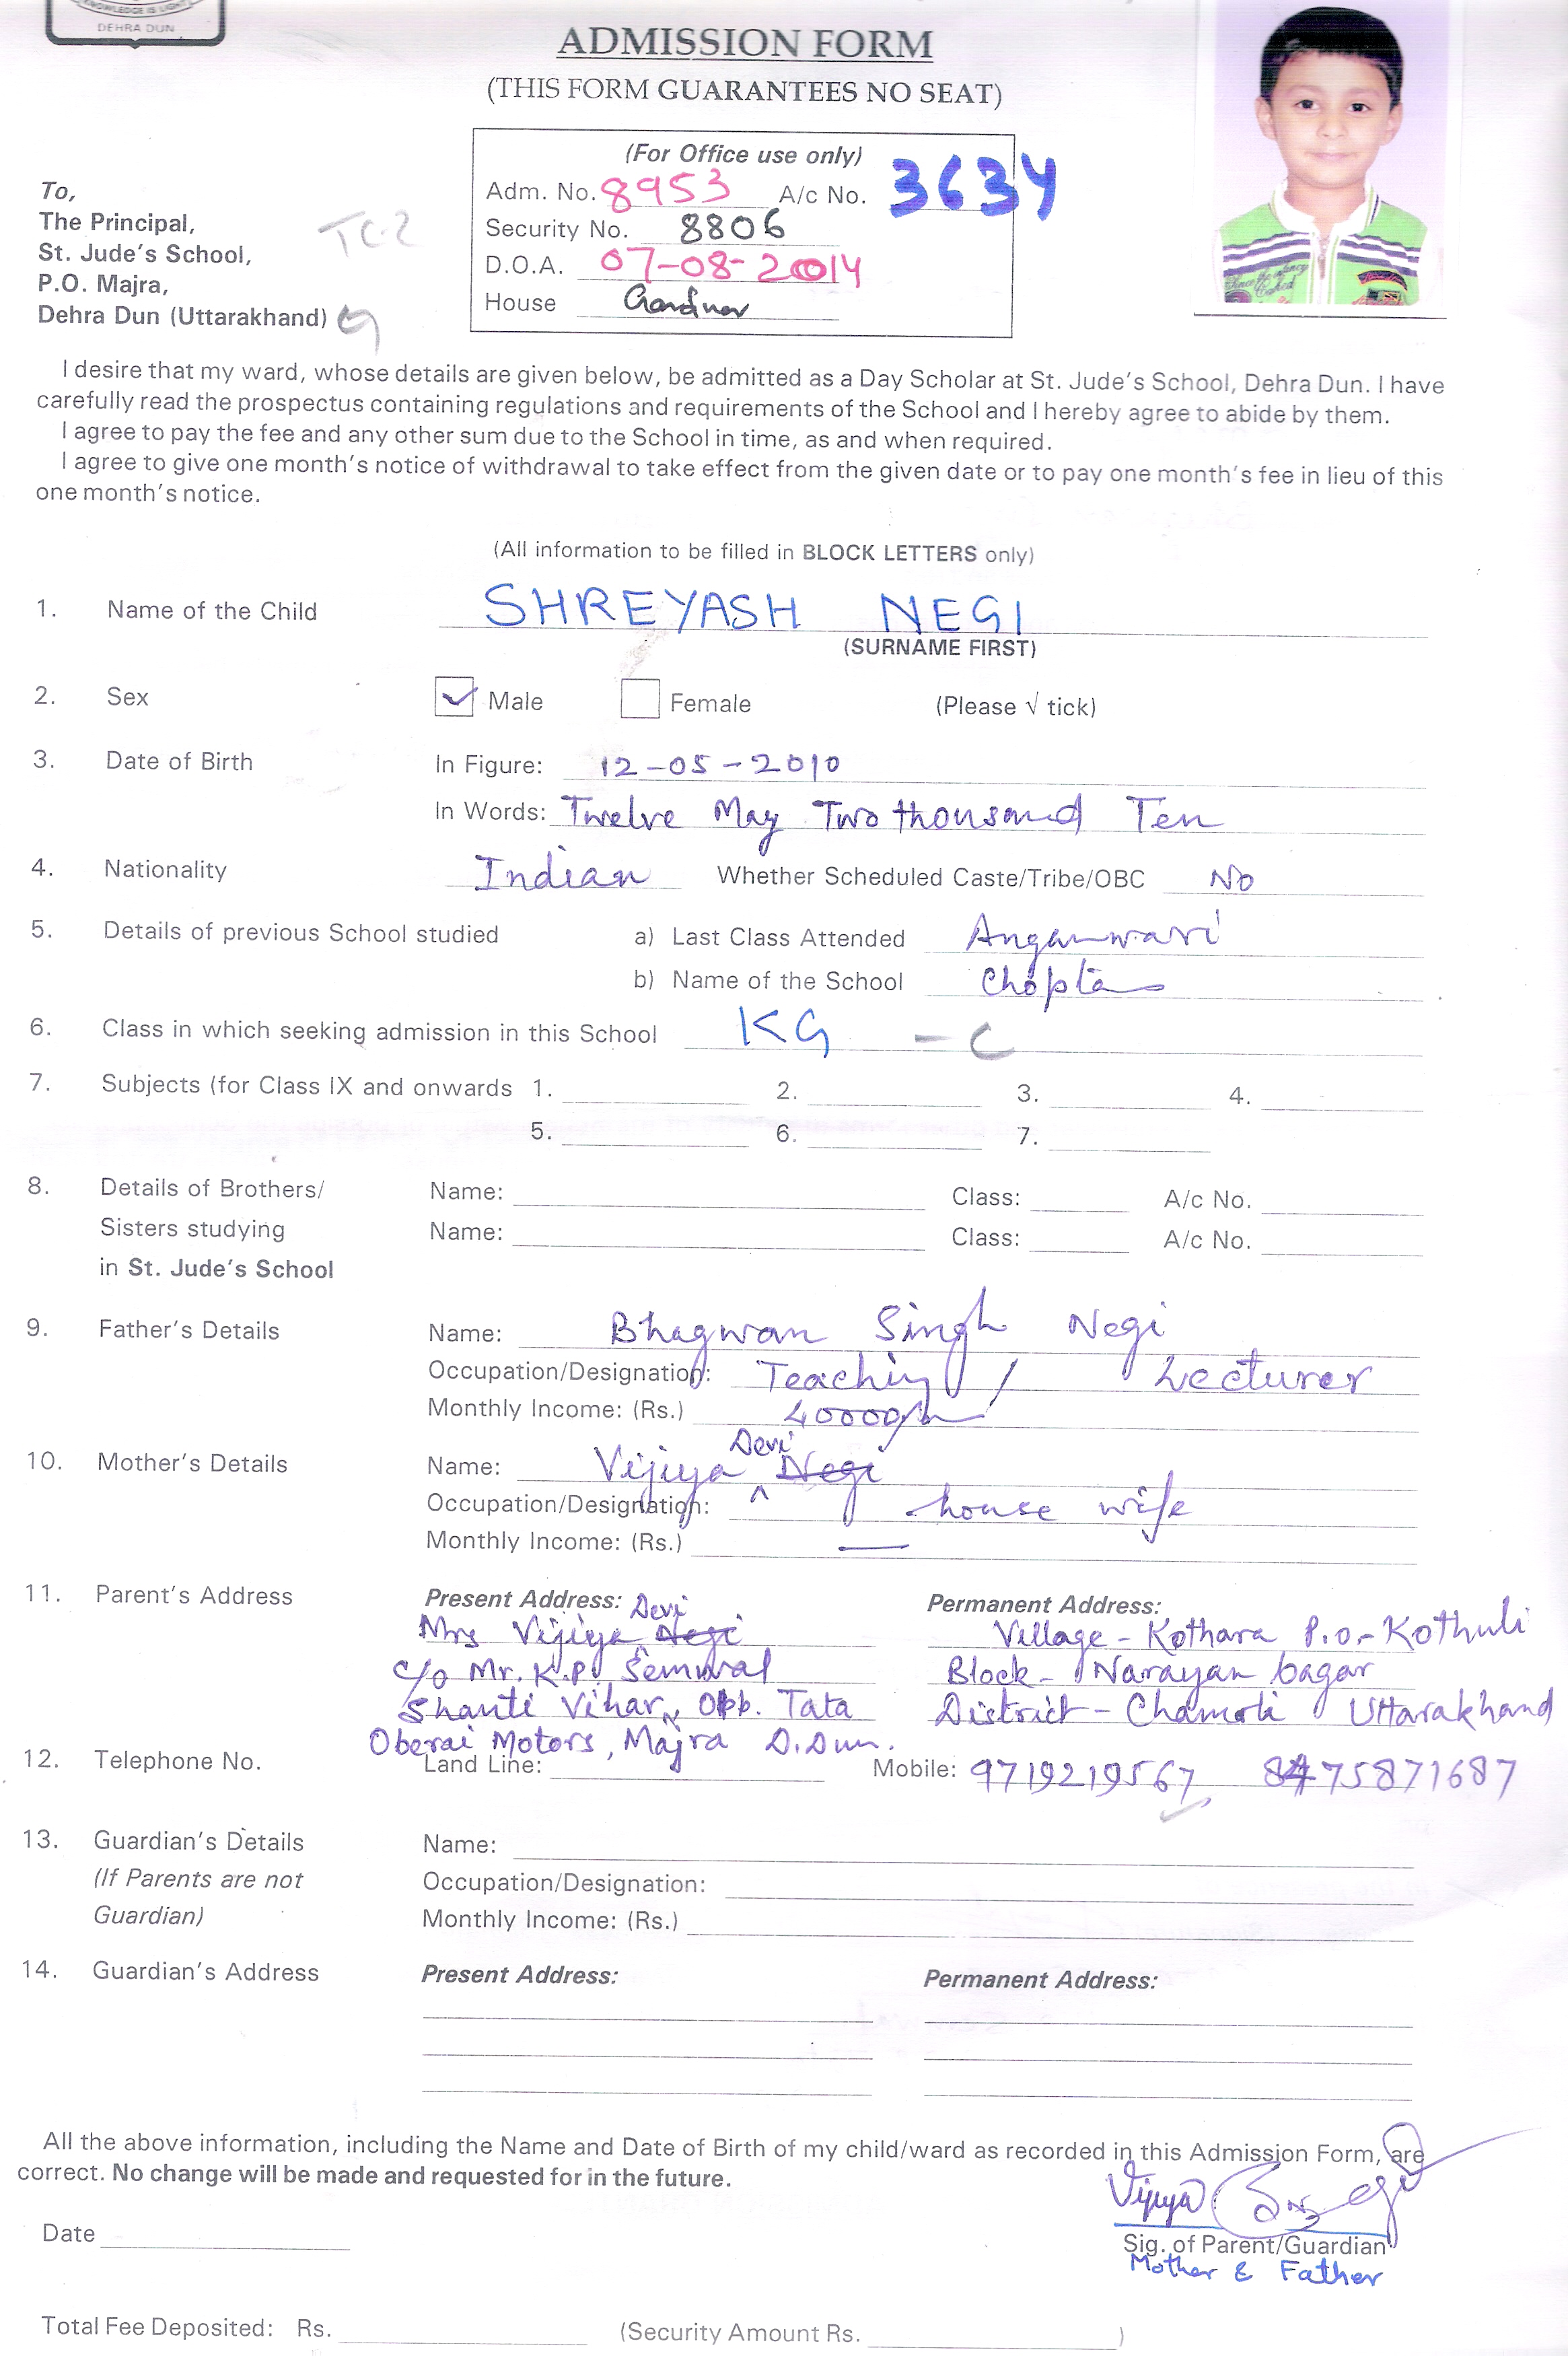 KNOWLEDGE IS LIGHT
DEHRA DUN
ADMISSION FORM
(THIS FORM GUARANTEES NO SEAT)
(For Office use only)
Adm. No. 8953 A/c No. 3634
Security No. 8806
D.O.A. 07-08-2014
House Gardner
To,
The Principal,
St. Jude's School,
P.O. Majra,
Dehra Dun (Uttarakhand)
TC-2
I desire that my ward, whose details are given below, be admitted as a Day Scholar at St. Jude's School, Dehra Dun. I have
carefully read the prospectus containing regulations and requirements of the School and I hereby agree to abide by them.
I agree to pay the fee and any other sum due to the School in time, as and when required.
I agree to give one month's notice of withdrawal to take effect from the given date or to pay one month's fee in lieu of this
one month's notice.
(All information to be filled in BLOCK LETTERS only)
1. Name of the Child SHREYASH NEGI
(SURNAME FIRST)
2. Sex Male Female (Please √ tick)
3. Date of Birth In Figure: 12-05-2010
In Words: Twelve May Two thousand Ten
4. Nationality Indian Whether Scheduled Caste/Tribe/OBC No
5. Details of previous School studied a) Last Class Attended Anganwari
b) Name of the School Chopta
6. Class in which seeking admission in this School KG - C
7. Subjects (for Class IX and onwards 1. 2. 3. 4.
5. 6. 7.
8. Details of Brothers/ Name: Class: A/c No.
Sisters studying Name: Class: A/c No.
in St. Jude's School
9. Father's Details Name: Bhagwan Singh Negi
Occupation/Designation: Teaching / Lecturer
Monthly Income: (Rs.) 40000/m
Devi
10. Mother's Details Name: Vijiya Negi
Occupation/Designation: house wife
Monthly Income: (Rs.) —
11. Parent's Address Present Address: Permanent Address:
Devi
Mrs Vijiya Negi Village - Kothara P.o.- Kothuli
c/o Mr. K.P. Semwal Block - Narayan bagar
Shanti Vihar, Opp. Tata District - Chamoli Uttarakhand
Oberai Motors, Majra D.Dun.
12. Telephone No. Land Line: Mobile: 9719219567 8475871687
13. Guardian's Details Name:
(If Parents are not Occupation/Designation:
Guardian) Monthly Income: (Rs.)
14. Guardian's Address Present Address: Permanent Address:
All the above information, including the Name and Date of Birth of my child/ward as recorded in this Admission Form, are
correct. No change will be made and requested for in the future.
Vijiya
Date
Sig. of Parent/Guardian
Mother & Father
Total Fee Deposited: Rs. (Security Amount Rs. )